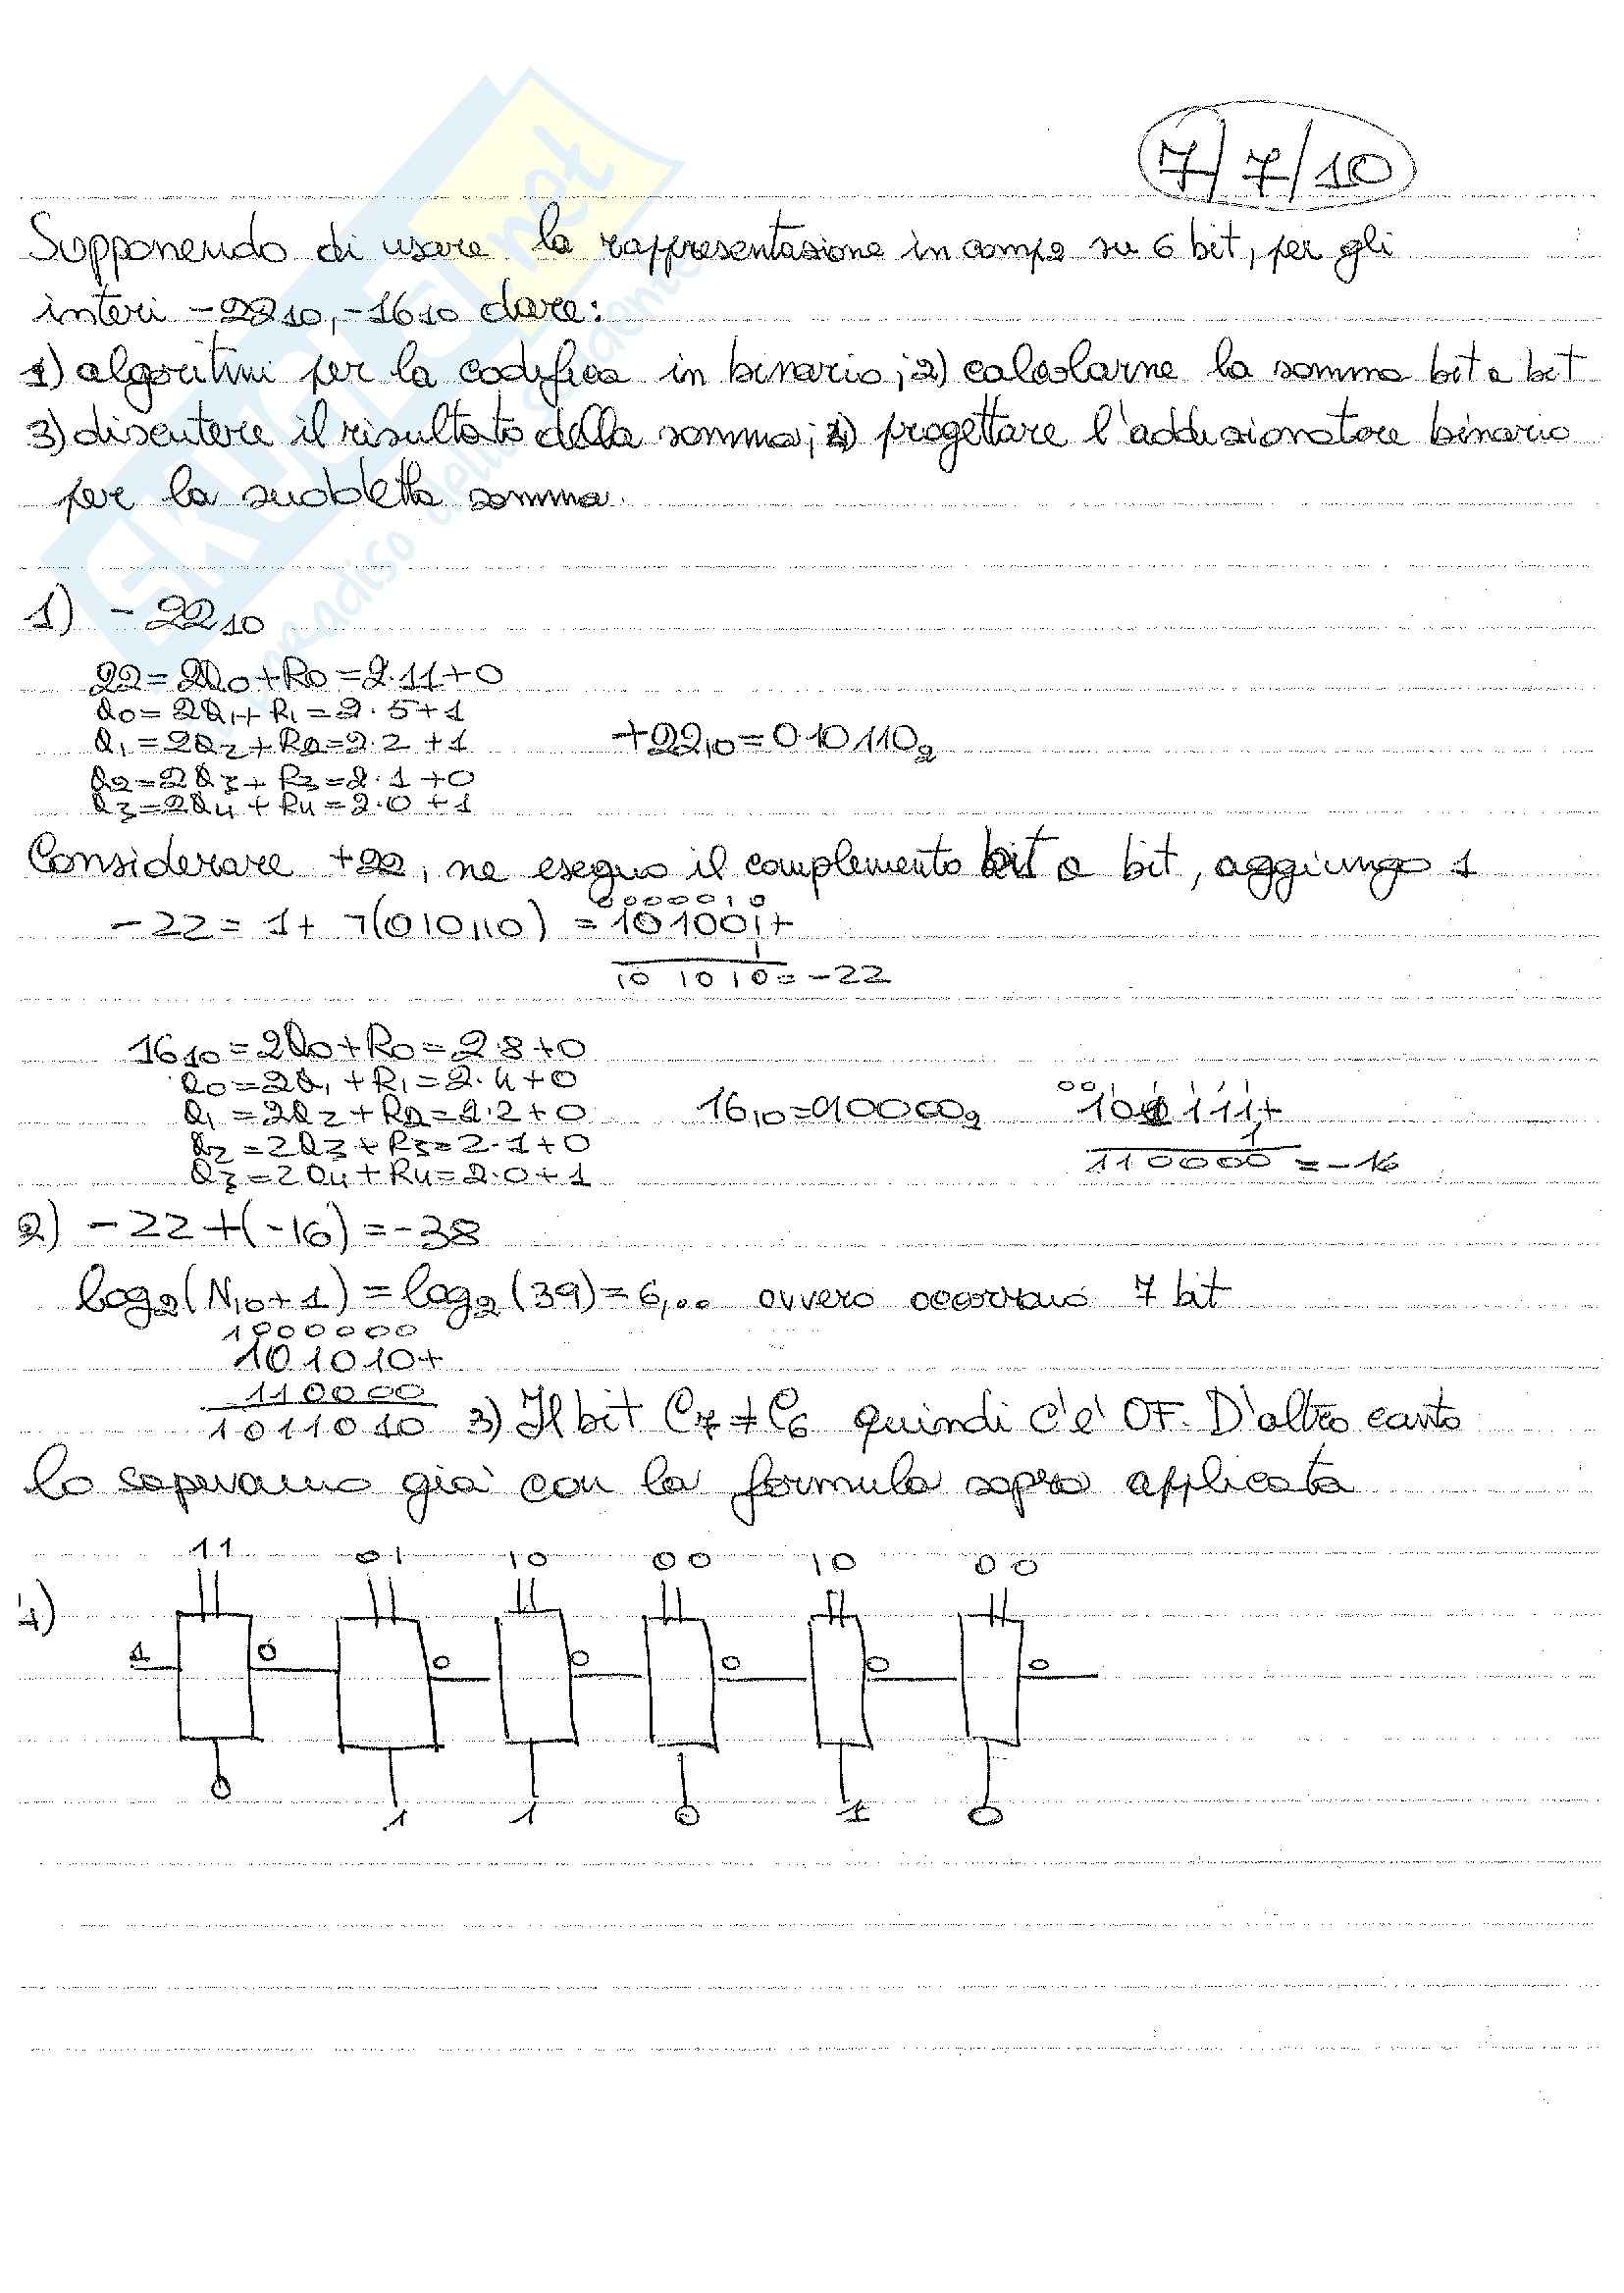 7/7/10
Supponendo di usare la rappresentazione in comp2 su 6 bit, per gli
interi -22₁₀, -16₁₀ dare:
1) algoritmi per la codifica in binario; 2) calcolarne la somma bit a bit
3) discutere il risultato della somma; 4) progettare l'addizionatore binario
per la suddetta somma.
1) -22₁₀
22=2Q₀+R₀=2·11+0
Q₀=2Q₁+R₁=2·5+1
Q₁=2Q₂+R₂=2·2+1 +22₁₀=010110₂
Q₂=2Q₃+R₃=2·1+0
Q₃=2Q₄+R₄=2·0+1
Considerare +22, ne eseguo il complemento bit a bit, aggiungo 1
000010
-22=1+ ¬(010110) = 101001+
1
101010=-22
16₁₀=2Q₀+R₀=2·8+0
Q₀=2Q₁+R₁=2·4+0
Q₁=2Q₂+R₂=2·2+0 16₁₀=010000₂ 101111+
Q₂=2Q₃+R₃=2·1+0 1
Q₃=2Q₄+R₄=2·0+1 110000=-16
2) -22+(-16)=-38
log₂(N₁₀+1)=log₂(39)=6,... ovvero occorrono 7 bit
1000000
101010+
110000
1011010 3) Il bit C₇≠C₆ quindi c'è OF. D'altro canto
lo sapevamo già con la formula sopra applicata
11 01 10 00 10 00
4)
1 0 0 0 0 0 0
0 1 1 0 1 0